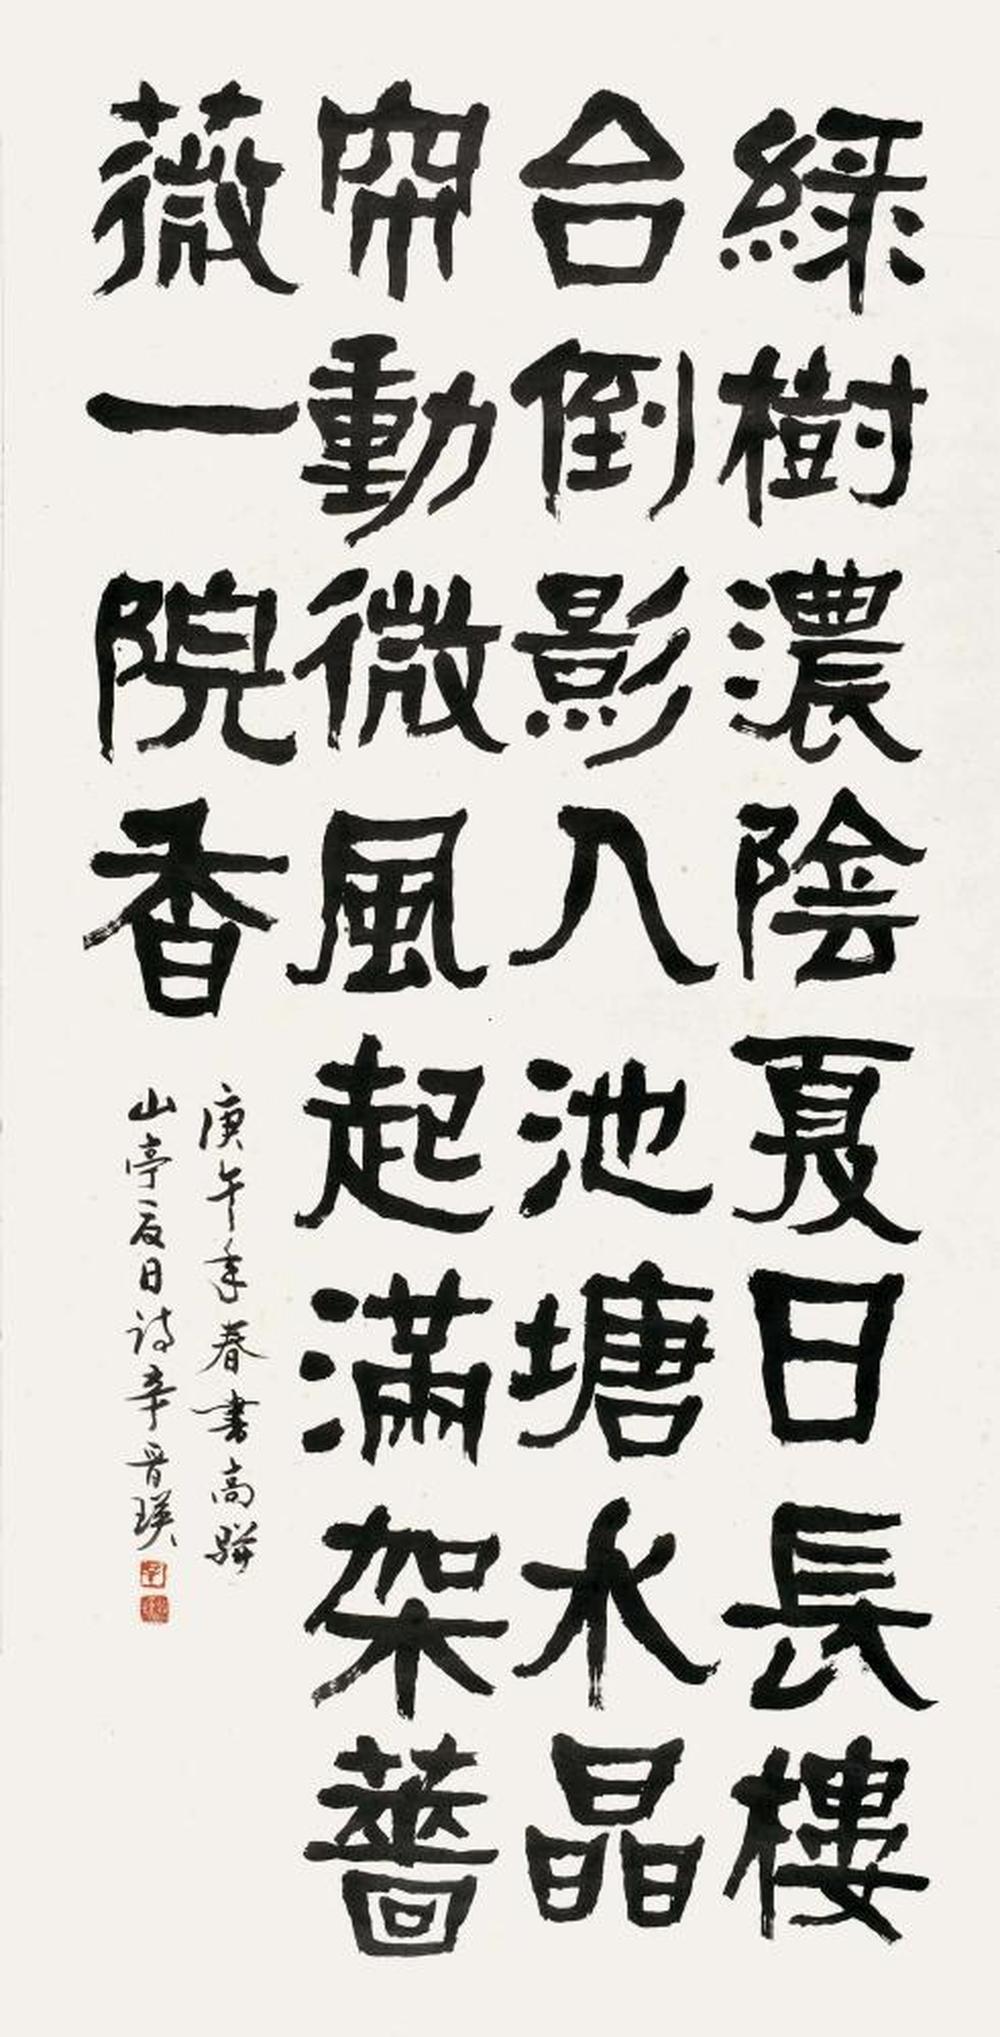 綠樹濃陰夏日長樓
台倒影入池塘水晶
帘動微風起滿架薔
薇一院香
庚午年春書高駢
山亭夏日诗辛晋瑛